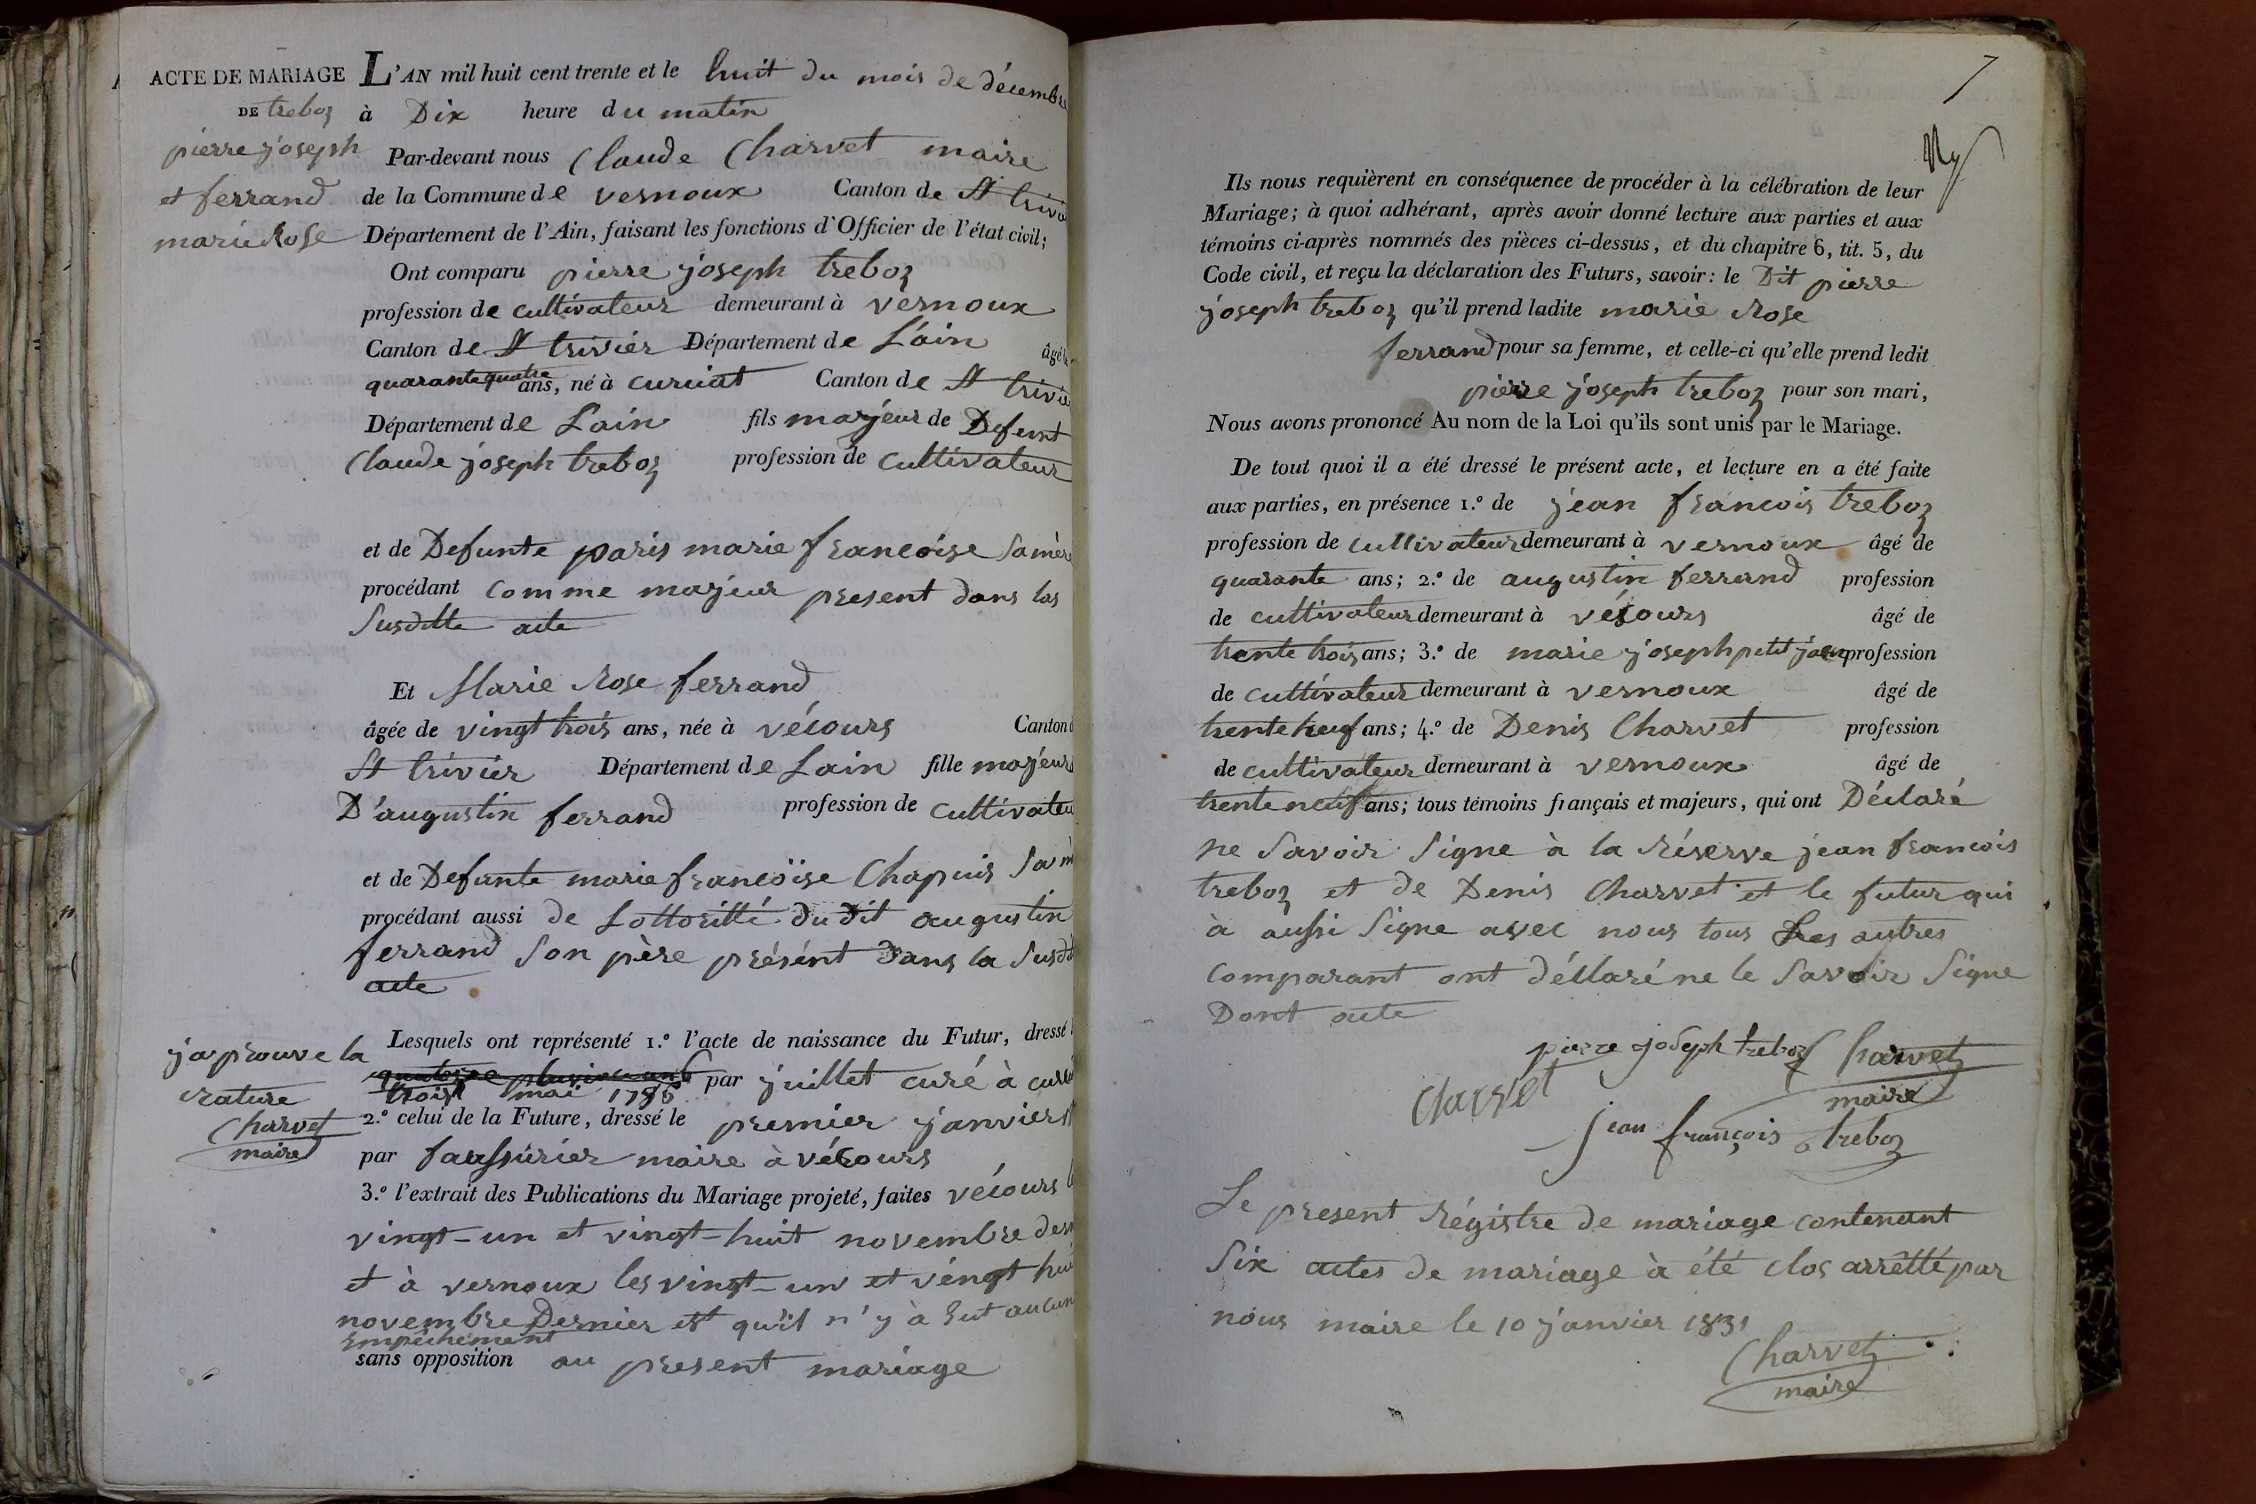 ACTE DE MARIAGE
DE treboz
pierre joseph
et ferrand
marie Rose
L'AN mil huit cent trente et le huit du mois de décembre
à Dix heure du matin
Par-devant nous Claude Charvet maire
de la Commune de vernoux Canton de St trivie
Département de l'Ain, faisant les fonctions d'Officier de l'état civil;
Ont comparu pierre joseph treboz
profession de cultivateur demeurant à vernoux
Canton de St trivier Département de L'ain âgé
quarante quatre ans, né à curciat Canton de St trivie
Département de Lain fils majeur de Defunt
Claude joseph treboz profession de cultivateur
et de Defunte paris marie francoise Sa mère
procédant comme majeur present dans las
Susditte acte
Et Marie Rose ferrand
âgée de vingt trois ans, née à vécours Canton
St trivier Département de Lain fille majeure
D'augustin ferrand profession de cultivateu
et de Defunte marie francoïse Chapuis Sa m
procédant aussi de Lottoritté du dit augustin
ferrand Son père présént dans la Susd
acte
japrouve la
rature
Charvet
maire
Lesquels ont représenté 1.º l'acte de naissance du Futur, dressé
trois mai 1786 par juillet curé à curci
2.º celui de la Future, dressé le premier janvier
par maire à vécours
3.º l'extrait des Publications du Mariage projeté, faites vécours
vingt-un et vingt-huit novembre der
et à vernoux les vingt-un et véngt hui
novembre Dernier et qu'il n'y à Eut aucun
Empêchement
sans opposition au present mariage
7
Ils nous requièrent en conséquence de procéder à la célébration de leur
Mariage; à quoi adhérant, après avoir donné lecture aux parties et aux
témoins ci-après nommés des pièces ci-dessus, et du chapitre 6, tit. 5, du
Code civil, et reçu la déclaration des Futurs, savoir: le Dit pierre
joseph treboz qu'il prend ladite marie Rose
ferrand pour sa femme, et celle-ci qu'elle prend ledit
pierre joseph treboz pour son mari,
Nous avons prononcé Au nom de la Loi qu'ils sont unis par le Mariage.
De tout quoi il a été dressé le présent acte, et lecture en a été faite
aux parties, en présence 1.º de jean francois treboz
profession de cultivateur demeurant à vernoux âgé de
quarante ans; 2.º de augustin ferrand profession
de cultivateur demeurant à vécours âgé de
trente trois ans; 3.º de marie joseph petit jean profession
de cultivateur demeurant à vernoux âgé de
trente neuf ans; 4.º de Denis Charvet profession
de cultivateur demeurant à vernoux âgé de
trente neuf ans; tous témoins français et majeurs, qui ont Déclaré
ne Savoir Signe à la réserve jean francois
treboz et de Denis Charvet et le futur qui
à aussi Signe avec nous tous Les autres
comparant ont déclaré ne le Savoir Signe
Dont acte
pierre joseph treboz Charvet
maire
Charvet
jean françois treboz
Le present Régistre de mariage contenant
Six actes de mariage à été clos arrêtté par
nous maire le 10 janvier 1831
Charvet
maire